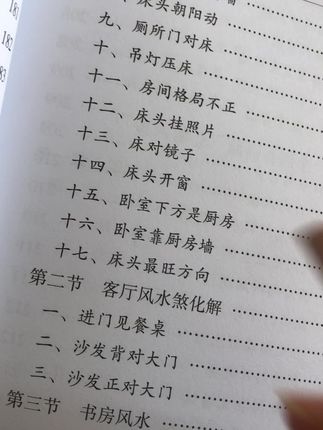 床头朝阳动
九、厕所门对床
十、吊灯压床
十一、房间格局不正
十二、床头挂照片
十三、床对镜子
十四、床头开窗
十五、卧室下方是厨房
十六、卧室靠厨房墙
十七、床头最旺方向
第二节 客厅风水煞化解
一、进门见餐桌
二、沙发背对大门
三、沙发正对大门
第三节 书房风水